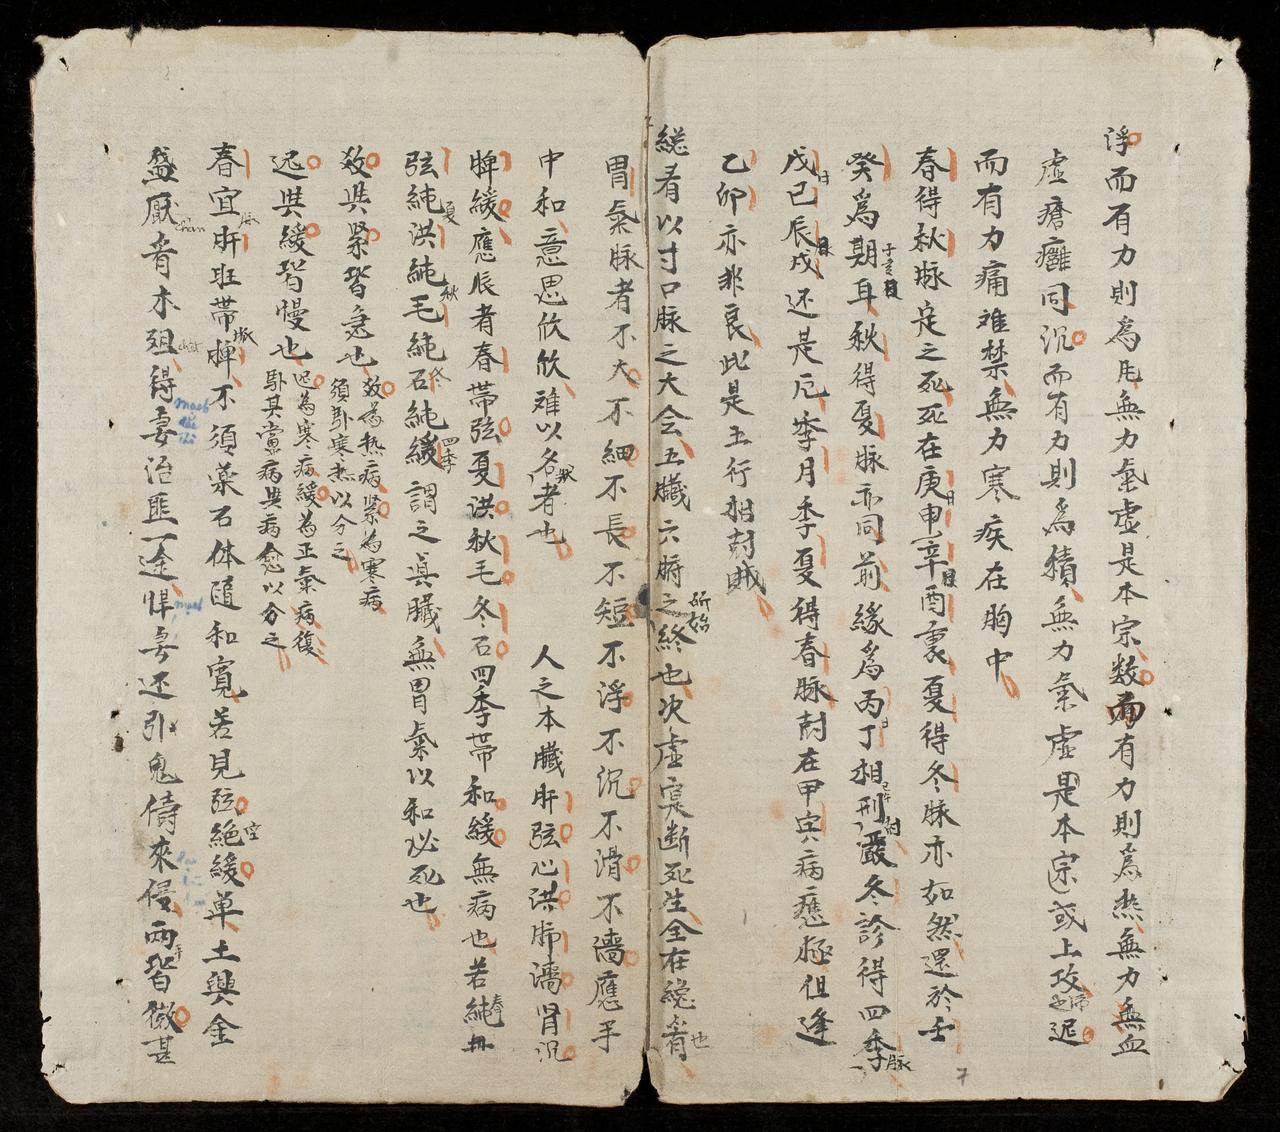 浮而有力則為風無力氣虛是本宗數而有力則為熱無力無血
虛瘡癰同沉而有力則為積無力氣虛是本宗或上攻也遲
而有力痛难禁無力寒疾在胸中
春得秋脉定之死死在庚日申辛酉裏夏得冬脉亦如然還於壬
癸為期耳秋得夏脉亦同前緣為丙丁相刑嚴冬診得四季脉
戊日己辰戌还是厄季月季夏得春脉尅在甲寅病應極但逢
乙卯亦非良此是五行相尅賊
総看以寸口脉之大会五臟六腑之所始終也次虛寔断死生全在総看也
胃氣脉者不大不細不長不短不浮不沉不滑不濇應手
中和意思欣欣难以名者也 人之本臟肝弦心洪肺濇肾沉
脾緩應辰者春帶弦夏洪秋毛冬石四季帶和緩無病也若純春無
弦純夏洪純秋毛純冬石純緩四季謂之真臟無胃氣以和必死也
数與紧皆急也 数為热病紧為寒病
須卧寒热以分之
迟與緩皆慢也 迟為寒病緩為正氣病復
卧其當病與病愈以分之
春宜肝旺帶脾不須藥石体隨和寬若見弦絶緩单土與金
盤厭肯木殂得妻治匪一途悍妻还引鬼俦來侵兩皆微甚
7